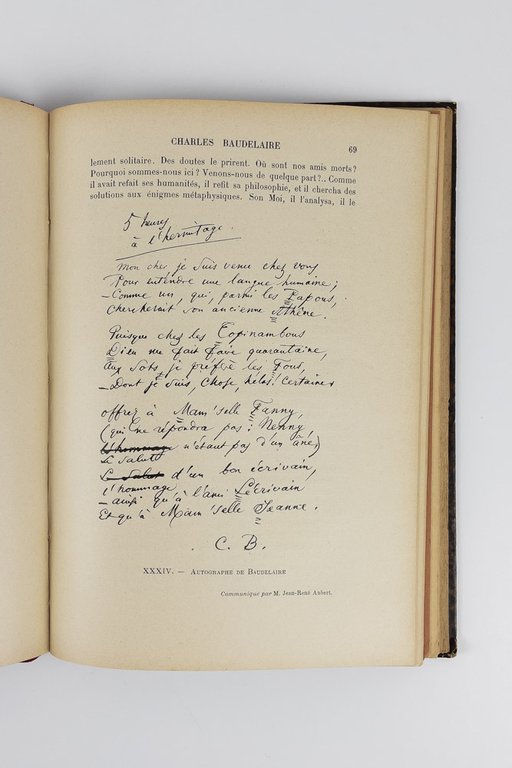 CHARLES BAUDELAIRE 69
lement solitaire. Des doutes le prirent. Où sont nos amis morts?
Pourquoi sommes-nous ici? Venons-nous de quelque part?.. Comme
il avait refait ses humanités, il refit sa philosophie, et il chercha des
solutions aux énigmes métaphysiques. Son Moi, il l'analysa, il le
5 heures
à l'hermitage.
Mon cher, je suis venu chez vous
Pour entendre une langue humaine;
– Comme un, qui, parmi les Papous,
Chercherait son ancienne Athêne.
Puisque chez les Topinambous
Dieu me fait faire quarantaine,
Aux Sots, je préfère les Fous,
– Dont je suis, chose, hélas! certaine.
offrez à Mam'selle Fanny,
(qui ne répondra pas: Nenny
L'hommage n'étant pas d'un âne)
Le salut
Le salut d'un bon écrivain,
L'hommage
– ainsi qu'à l'ami Lécrivain
Et qu'à Mam'selle Jeanne.
C. B.
XXXIV. — AUTOGRAPHE DE BAUDELAIRE
Communiqué par M. Jean-René Aubert.